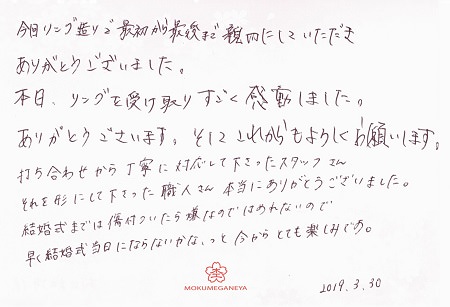 今回リング造りで最初から最後まで親切にしていただき
ありがとうございました。
本日、リングを受け取りすごく感動しました。
ありがとうございます。そしてこれからもよろしくお願いします。
打ち合わせから丁寧に対応して下さったスタッフさん
それを形にして下さった職人さん本当にありがとうございました。
結婚式までは傷付いたら嫌なのではめれないので
早く結婚式当日にならないかな、っと今からとても楽しみです。
MOKUMEGANEYA
2019.3.30